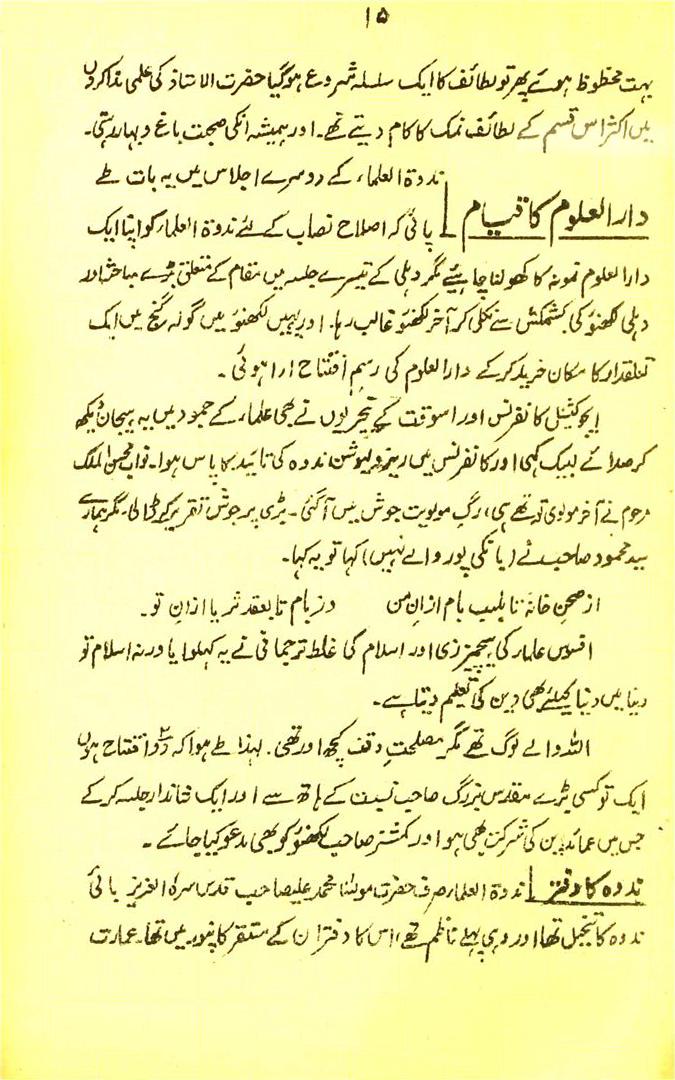 ۱۵
بہت محظوظ ہوئے پھر تو لطائف کا ایک سلسلہ شروع ہوگیا حضرت الاستاذ کی علمی مذاکروں
میں اکثر اس قسم کے لطائف نمک کا کام دیتے تھے۔ اور ہمیشہ انکی صحبت باغ و بہار رہتی۔
ندوۃ العلماء کے دوسرے اجلاس میں یہ بات طے
دارالعلوم کا قیام
پائی کہ اصلاح نصاب کے لئے ندوۃ العلماء کو اپنا ایک
دارالعلوم نمونہ کا کھولنا چاہیئے مگر دہلی کے تیسرے جلسہ میں مقام کے متعلق بڑے مباحثہ اور
دہلی لکھنؤ کی کشمکش سے نکل کر آخر لکھنؤ غالب رہا۔ اور یہیں لکھنؤ میں گولہ گنج میں ایک
تعلقدار کا مکان خرید کر کے دارالعلوم کی رسم افتتاح ادا ہوئی۔
ایجوکیشنل کانفرنس اور اسوقت کے نیچریوں نے بھی علماء کے جمود میں یہ ہیجان دیکھ
کر صدائے لبیک کہی اور کانفرنس میں ریزولیوشن ندوہ کی تائید کا پاس ہوا۔ نواب محسن الملک
مرحوم نے آخر مولوی تو تھے ہی، رگِ مولویت جوش میں آگئی۔ بڑی پرجوش تقریر کر ڈالی۔ مگر ہمارے
سید محمود صاحب نے (بانکی پور والے نہیں) کہا تو یہ کہا۔
از صحن خانہ تا بلب بام ازانِ من وز بام تا بعقد ثریا ازانِ تو۔
افسوس علماء کی اور اسلام کی غلط ترجمانی نے یہ کہلوایا ورنہ اسلام تو
دنیا میں دنیا کیلئے بھی دین کی تعلیم دیتا ہے۔
اللہ والے لوگ تھے مگر مصلحت وقف کچھ اور تھی۔ لہذا طے ہوا کہ دو افتتاح ہوں
ایک تو کسی بڑے مقدس بزرگ صاحب نسبت کے ہاتھ سے اور ایک شاندار جلسہ کر کے
جس میں عمائدین کی شرکت بھی ہو اور کمشنر صاحب لکھنؤ کو بھی مدعو کیا جائے۔
ندوہ کا دفتر ندوۃ العلماء صرف حضرت مولنا محمد علیصاحب قدس سرہ العزیز بانی
ندوہ کا تخیل تھا اور وہی پہلے ناظم تھے، اس کا دفتر ان کے مستقر کانپور میں تھا۔ عمارت